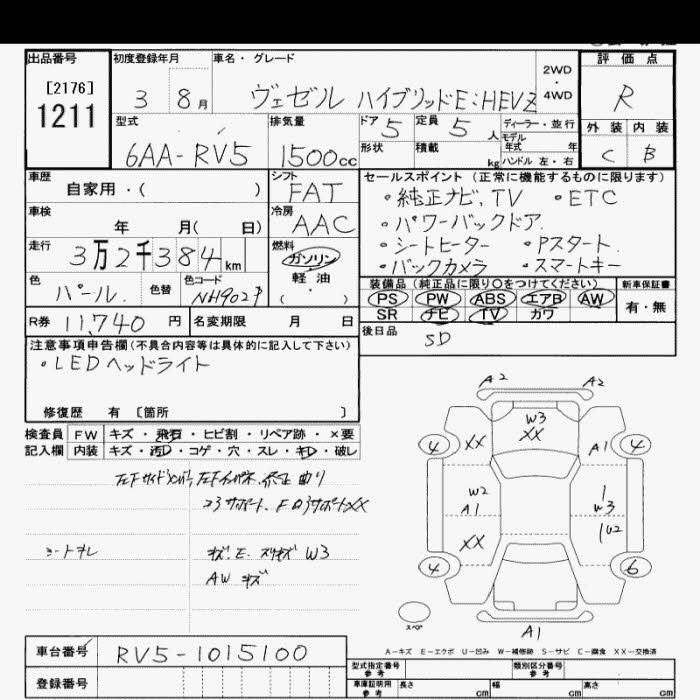 出品番号
[2176]
1211
初度登録年月
3 8月
車名・グレード
ヴェゼル ハイブリッドE:HEVZ
2WD
・
4WD
評価点
R
外装 内装
C B
型式
6AA-RV5
排気量
1500cc
ドア 5
定員 5人
ディーラー・並行
モデル
年式 年
形状
積載 kg
ハンドル 左・右
車歴
自家用・( )
シフト
FAT
車検
年 月( 日)
冷房
AAC
走行
3万2千384km
燃料
ガソリン
軽油
・( )
色
パール.
色替
色コード
NH902P
R券 11,740円
名変期限 月 日
セールスポイント(正常に機能するものに限ります)
・純正ナビ、TV ・ETC
・パワーバックドア.
・シートヒーター ・Pスタート.
・バックカメラ ・スマートキー
装備品(純正品に限り○をつけてください)
新車保証書
PS PW ABS エアB AW
SR ナビ TV カワ
有・無
後日品
SD
注意事項申告欄(不具合内容等は具体的に記入して下さい)
・LEDヘッドライト
修復歴 有 〔箇所 〕
検査員 FW キズ・飛石・ヒビ割・リペア跡・×要
記入欄 内装 キズ・汚D・コゲ・穴・スレ・キD・破し
コアサポート
XX
キズ、E、スリキズ W3
AW キズ
A2 A2
W3
XX
4 XX A1 4
W2
A1
1
W3
XX
1U2
4 6
スペア
A1
A−キズ E−エクボ U−凹み W−補修跡 S−サビ C−腐食 XX−交換済
車台番号 RV5-1015100
登録番号
型式指定番号
参考
類別区分番号
参考
車庫証明用
参考
長さ cm 幅 cm 高さ cm